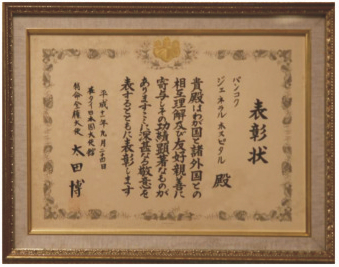 表彰状
バンコク
ジェネラル ホスピタル 殿
貴殿はわが国と諸外国との
相互理解及び友好親善に
寄与しその功績顕著なものが
あります ここに深甚なる敬意を
表するとともに表彰します
平成十一年九月二十四日
在タイ日本国大使館
特命全権大使
太田博